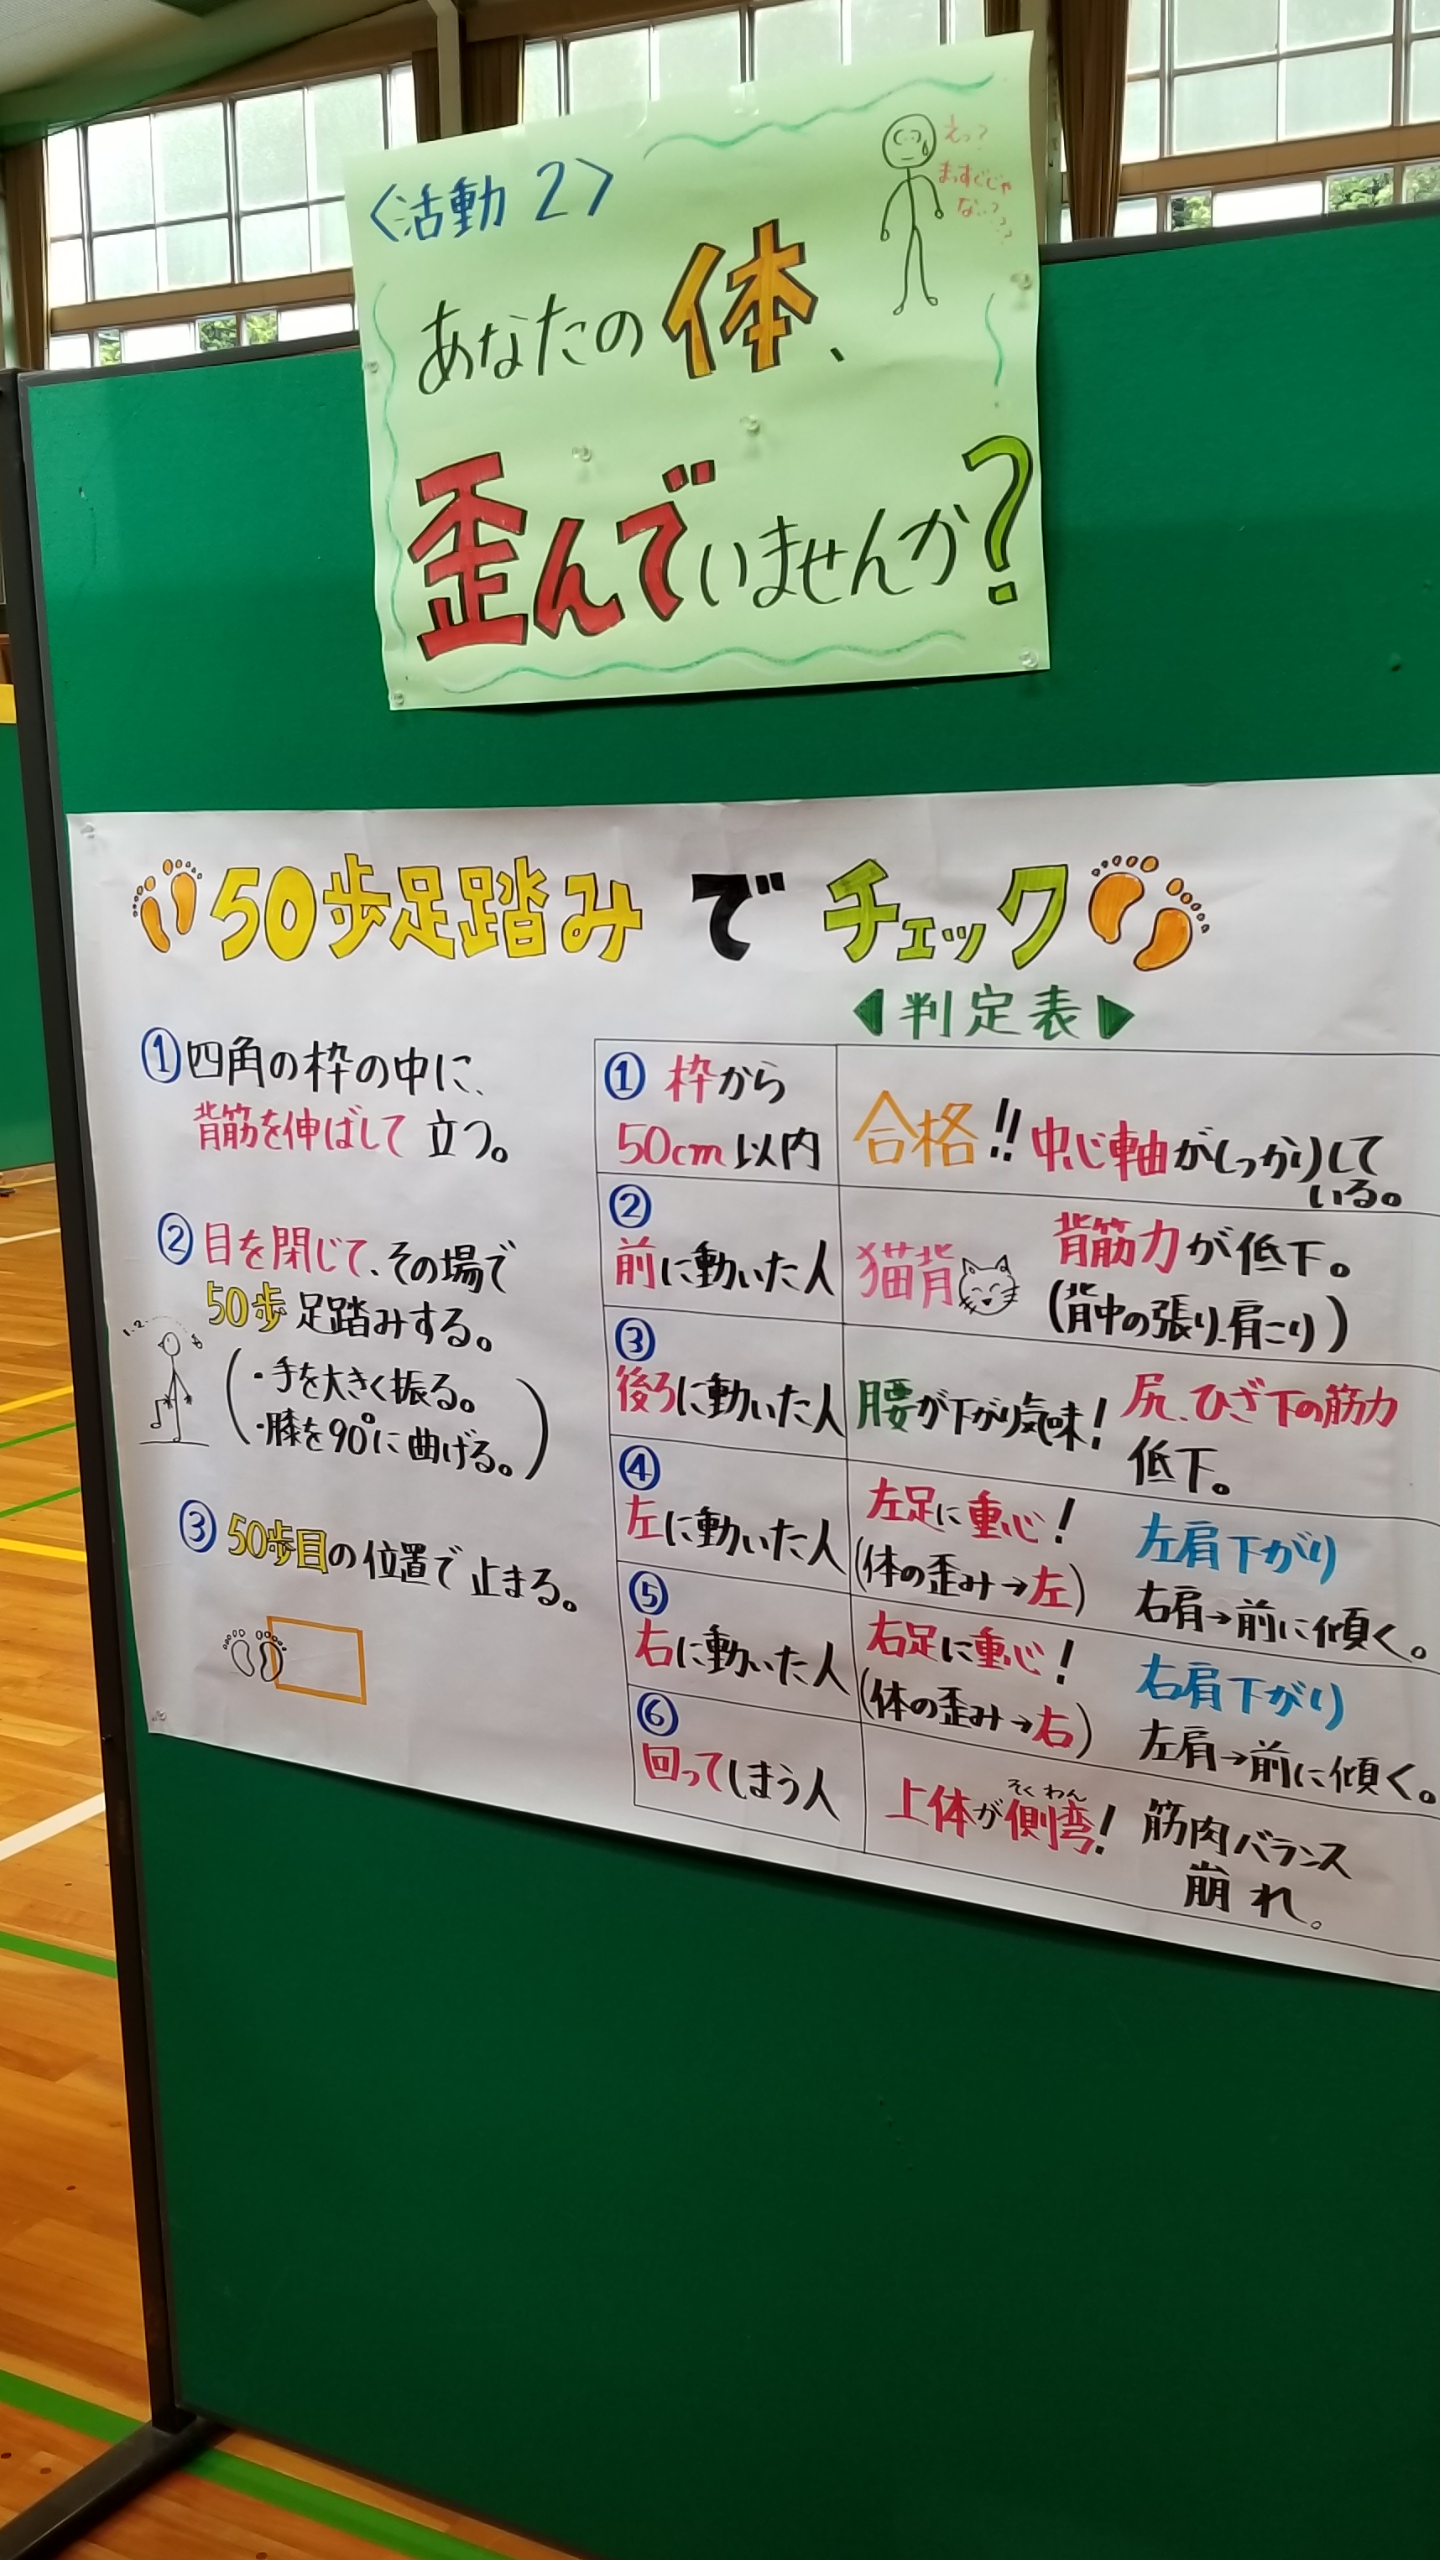 〈活動 2〉
えっ?
まっすぐじゃ
ない??
あなたの体、
歪んでいませんか?
50歩足踏みでチェック
①四角の枠の中に、
背筋を伸ばして立つ。
②目を閉じて、その場で
50歩足踏みする。
1.2.
(・手を大きく振る。
・膝を90°に曲げる。)
③50歩目の位置で止まる。
◀判定表▶
①枠から
50cm以内
合格!!中心軸がしっかりして
いる。
②
前に動いた人
猫背
背筋力が低下。
(背中の張り、肩こり)
③
後ろに動いた人
腰が下がり気味!
尻、ひざ下の筋力
低下。
④
左に動いた人
左足に重心!
(体の歪み→左)
左肩下がり
右肩→前に傾く。
⑤
右に動いた人
右足に重心!
(体の歪み→右)
右肩下がり
左肩→前に傾く。
⑥
回ってしまう人
そくわん
上体が側弯!
筋肉バランス
崩れ。